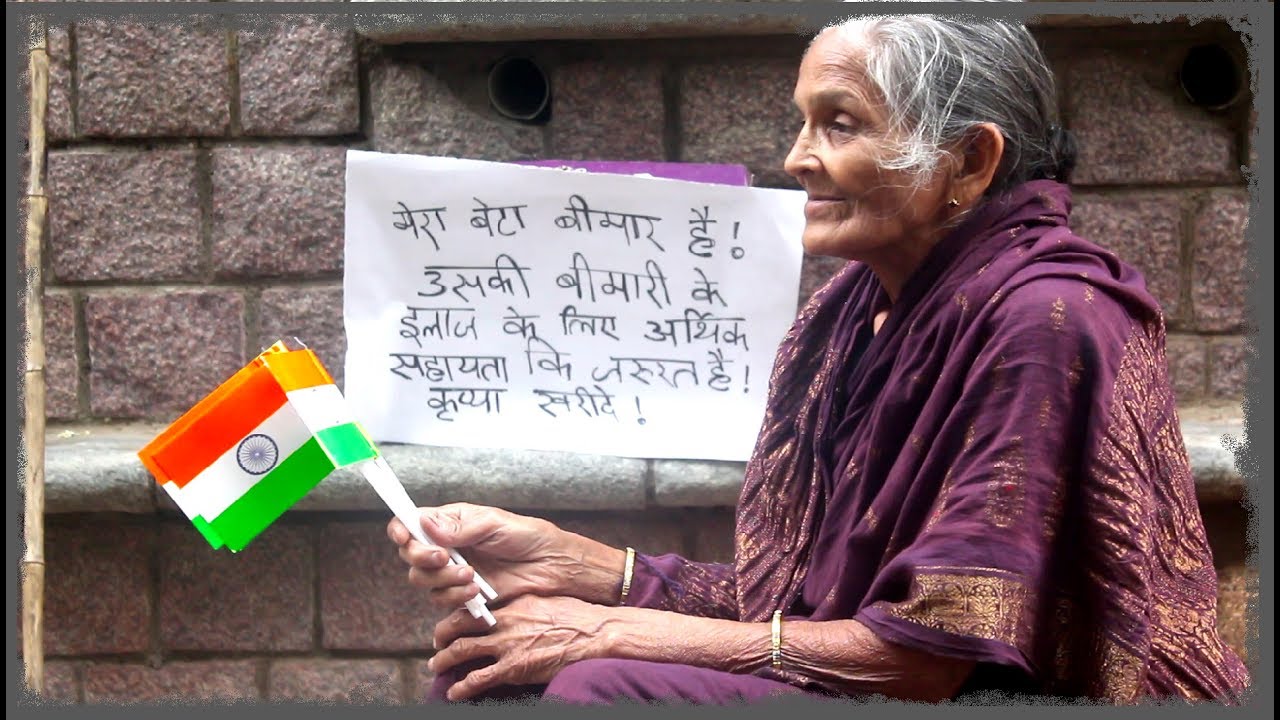 मेरा बेटा बीमार है!
उसकी बीमारी के
इलाज के लिए अर्थिक
सहायता कि जरुरत है!
कृप्या खरीदे!